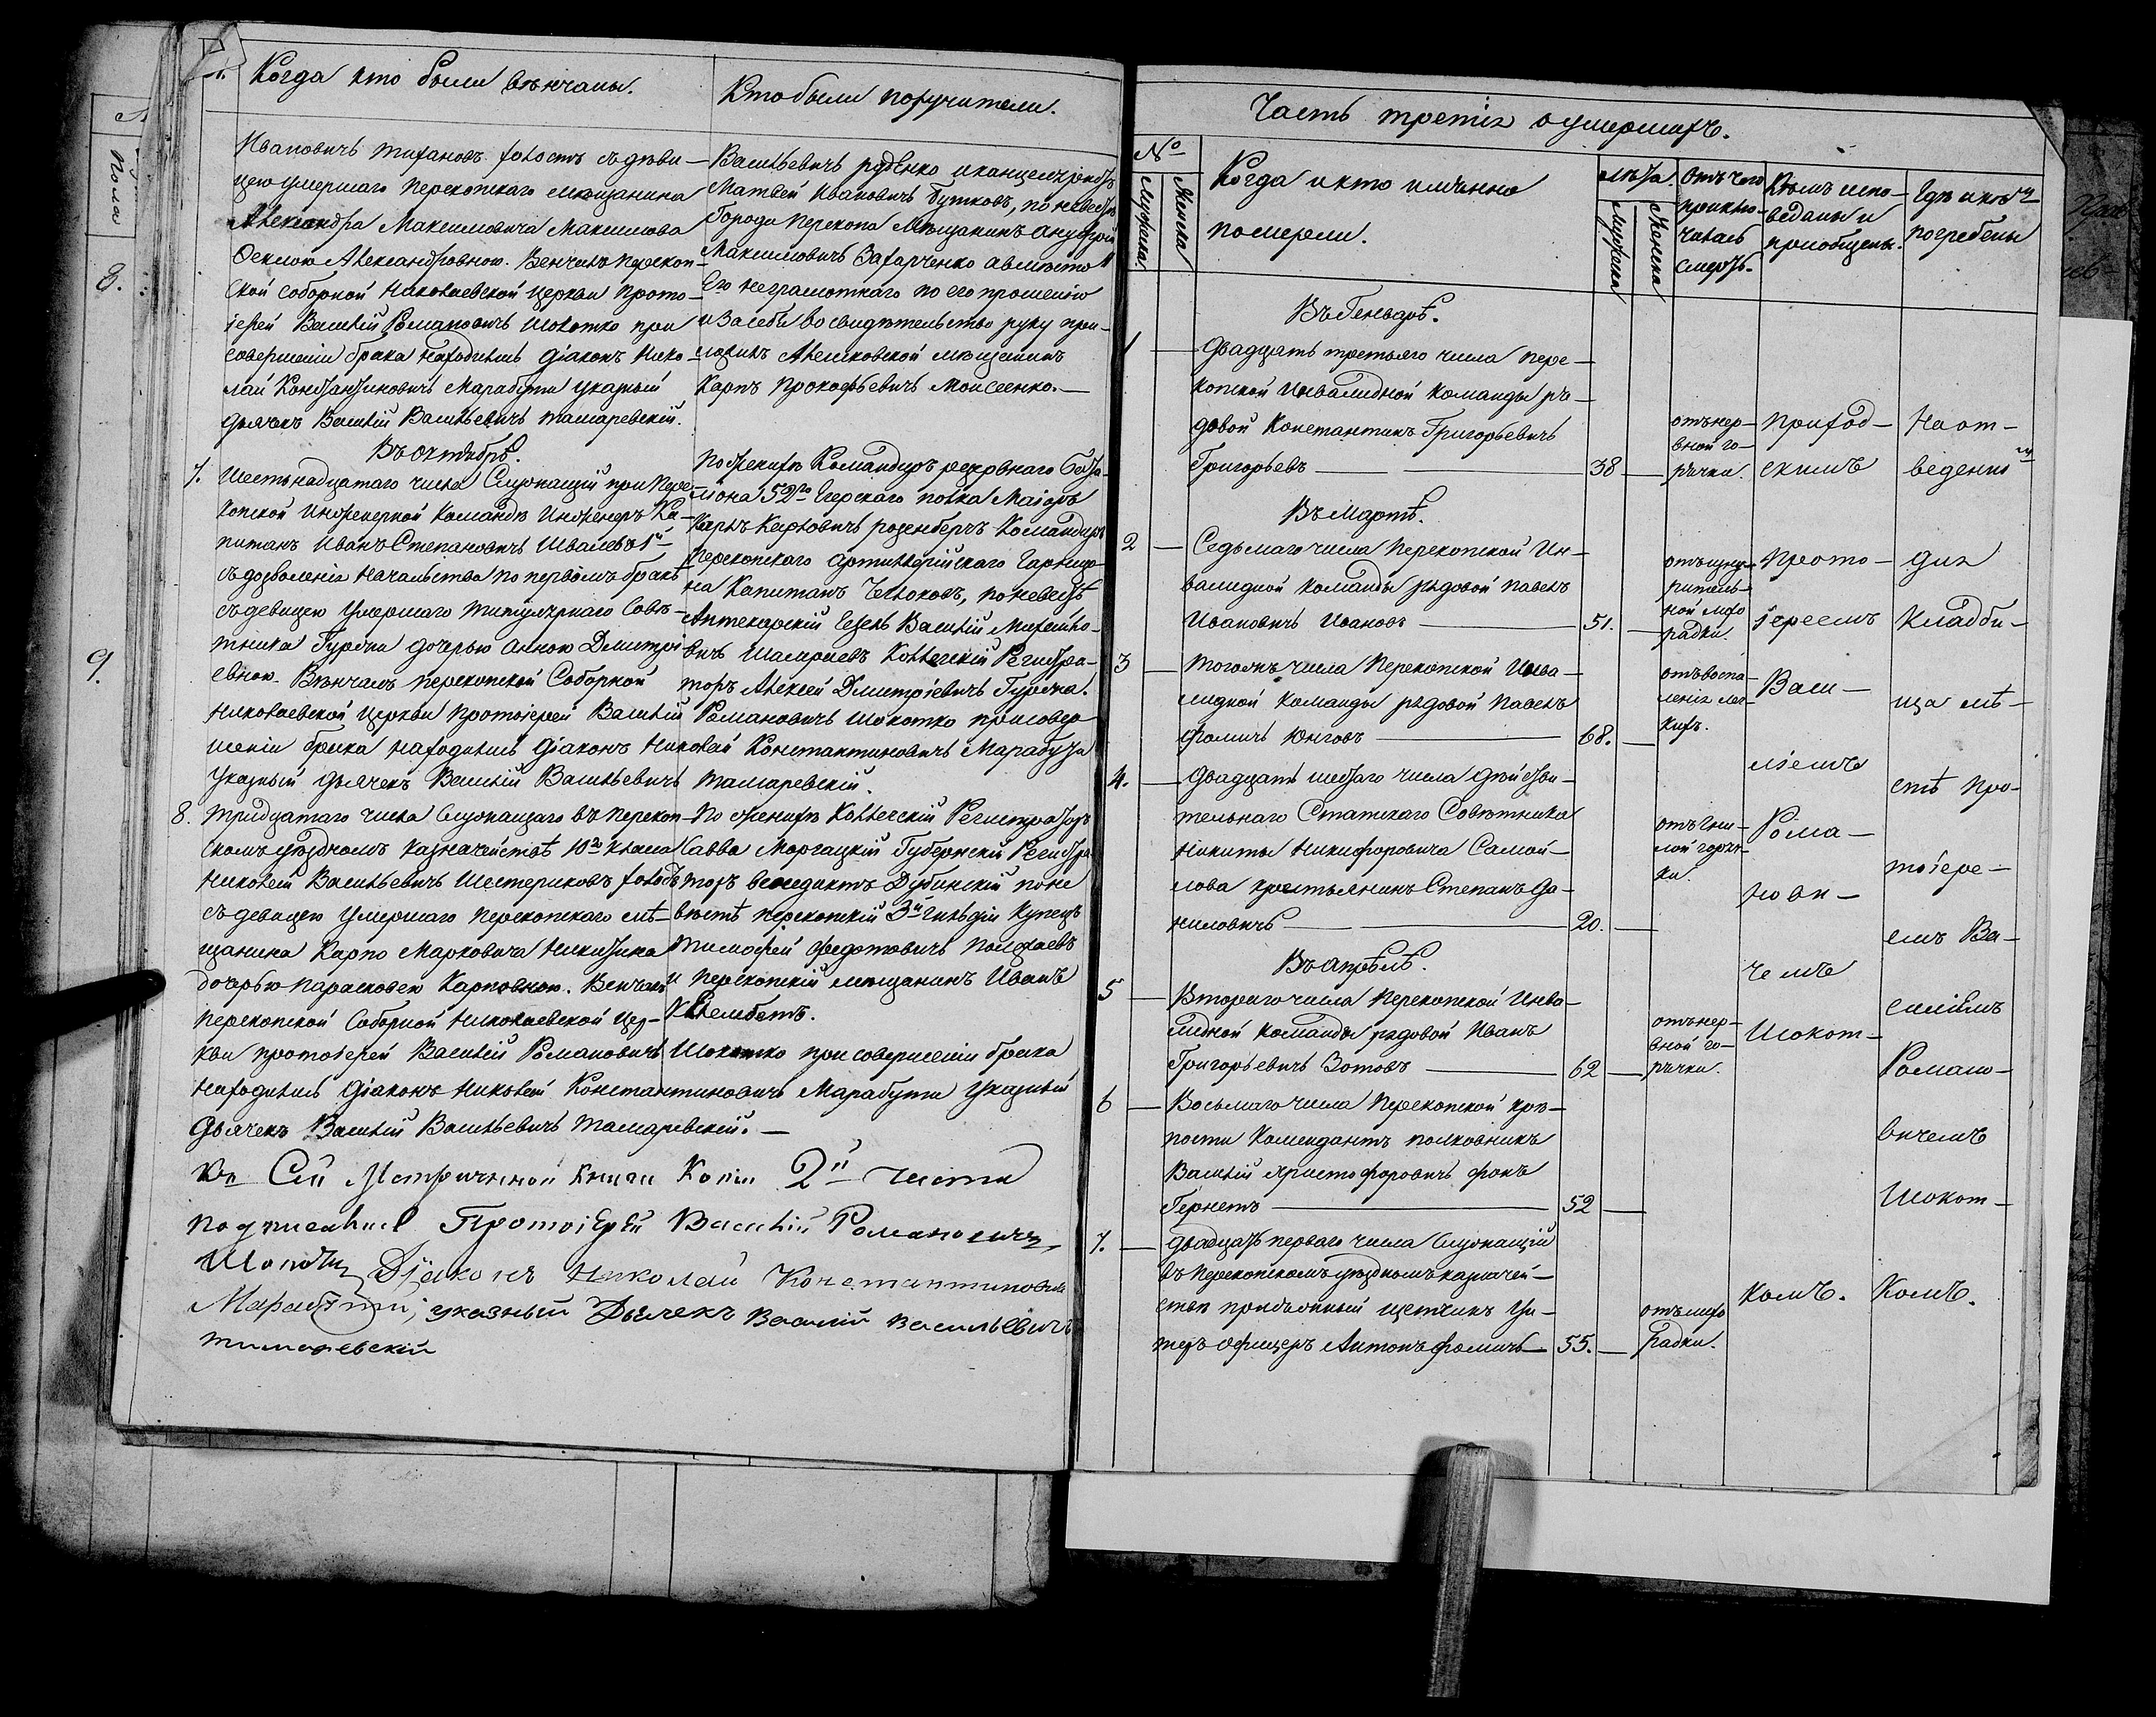 Когда кто были вѣнчаны.
Кто были поручители.
Ивановичь Титановъ холостъ съ дѣви-
цею умершаго Перекопскаго мѣщанина
Александра Максимовича Максимова
Феклою Александровною. Венчалъ Перекоп-
ской соборной Николаевской церкви прото-
іерей Василій Романовичь Шокотко при
совершеніи брака находились діаконъ Нико-
лай Константиновичь Марабути указный
дьячекъ Василій Васильевичь Тамаревскій.
Васильевичь Руденко и канцеляристъ
Матвей Ивановичь Бутковъ, по невестѣ
Города Перекопа мѣщанинъ
Максимовичь Захарченко а вместо
Его неграмотнаго по его прошенію
и за себя во свидѣтельство руку при-
ложилъ Алешковской мѣщанинъ
Карпъ Прокофьевичь Моисеенко.
Въ октябрѣ.
7. Шестьнадцатаго числа Служащій при Пере-
копской Инженерной Командѣ Инженеръ Ка-
питанъ Иванъ Степановичь Швалевъ 1й
съ дозволенія начальства по первомъ бракѣ
съ девицею умершаго титулярнаго Совѣ-
тника Гурджи дочерью Анною Дмитрі
евною. Вѣнчалъ Перекопской Соборной
Николаевской церкви протоіерей Василій Романовичь Шокотко при совер
шеніи брака находились діаконъ Николай Константиновичь Марабути
указный дьячекъ Василій Васильевичь Тамаревскій.
По женихѣ Командиръ резервнаго бата-
ліона 52го Егерскаго полка Маіоръ
Карлъ Карловичь Розенбергъ Командиръ
Перекопскаго артиллерійскаго Гарнизо
на Капитанъ Чельоковъ, по невестѣ
Аптекарскій Гезель Василій Михайло-
вичь Шамраевъ Коллегскій Регистра-
торъ Алексей Дмитріевичь Гурджи.
8. Тридцатаго числа Служащаго въ Перекоп-
скомъ уѣздномъ казначействѣ 10го класа
Николай Васильевичь Шестериковъ холостъ
съ девицею умершаго Перекопскаго мѣ-
щанина Карпа Марковича Никитина
дочерью Парасковею Карповною. Венчалъ
Перекопской Соборной Николаевской цер-
кви протоіерей Василій Романовичь Шокотко при совершеніи брака
находились діаконъ Николай Константиновичь Марабути указный
дьячекъ Василій Васильевичь Тамаревскій.
По женихѣ Коллегскій Регистраторъ
Савва Маргацкій Губернскій Регистра
торъ Венедиктъ Дубинскій по не
вѣстѣ Перекопскій 3й гильдіи Купецъ
Тимофей Федотовичь
и Перекопскій мѣщанинъ Иванъ
Келембетъ.
Къ Сей Метрычнной Книги Копіи 2й части
подписались Протоіерей Василій Романовичъ
Шокотко Діаконъ Николай Константиновичь
Марабути, указный Дьячекъ Василій Васильевичъ
Тамаревскій
8.
9.
Часть третія о умершихъ.
№
Мужска
Женска
Когда и кто именно
померли.
лѣта.
Мужска
Женска
Отъ чего
приклю-
чилась
смерть.
Кѣмъ испо-
веданы и
пріобщены.
Гдѣ и кѣмъ
погребены
Въ Генварѣ.
1 Двадцать третьяго числа Пере-
копской Инвалидной Команды ря-
довой Константинъ Григорьевичь
Григорьевъ 38 отъ нер-
вной го-
рячки.
Въ Мартѣ.
2 Седьмаго числа Перекопской Ин-
валидной Команды рядовой Павелъ
Ивановичь Ивановъ 51. отъ изну-
ритель-
ной лихо
радки.
3 Тогожъ числа Перекопской Инва-
лидной Команды рядовой Павелъ
Фомичь Юнговъ 68. отъ воспа-
ленія лег-
кихъ.
4. Двадцать шестаго числа Дѣйстви-
тельнаго Статскаго Совѣтника
Никиты Никифоровича Самой-
лова крестьянинъ Степанъ Да-
ниловичь 20. отъ гни-
лой горяч-
ки.
Въ Апрѣлѣ.
5 Втораго числа Перекопской Инва-
лидной Команды рядовой Иванъ
Григорьевичь Зотовъ 62 отъ нер-
вной го-
рячки.
6 Восьмаго числа Перекопской крѣ-
пости Комендантъ полковникъ
Василій Христофоровичь фонъ
Гернетъ 52
7. Двадцать перваго числа Служащій
въ Перекопскомъ уѣздномъ казначей-
стви присяжный щетчикъ Ун-
теръ офицеръ Антонъ Фомичь 55. отъ лихо
радки.
Приход-
скимъ
Прото-
іереемъ
Васи-
ліемъ
Рома-
нови-
чемъ
Шокот-
комъ.
На от-
веденномъ
для
кладби-
ща мѣ-
стѣ Про-
тоіере-
емъ Ва-
силіемъ
Романо-
вичемъ
Шокот-
комъ.